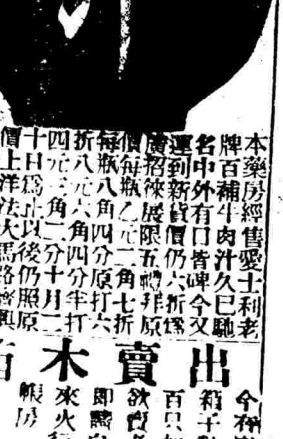 本藥房經售愛士利老
牌百補牛肉汁久已馳
名中外有口皆碑今又
運到新貨價仍六折
廣招徠展限五禮拜原
價每瓶乙元二角七折
每瓶八角四分原打六
折八元六角四分半打
四元三角二分十月二
十日為止以後仍照原
價上洋法大馬路
出賣木
今
箱子
百只
欲賣
即請
來火行
帳房